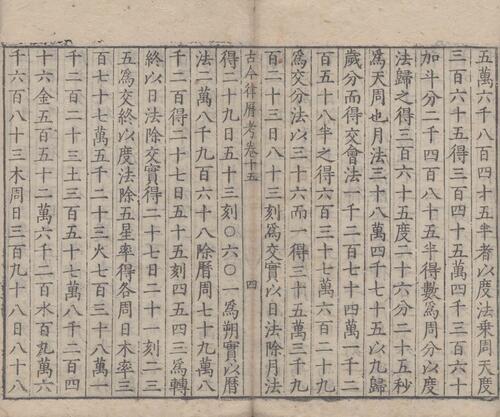 五萬六千八百四十五半者以度法乘周天度
三百六十五得三百四十五萬四千三百六十
加斗分二千四百八十五半得數爲周分以度
法歸之得三百六十五度二十六分二十五秒
爲天周也月法三十八萬四千七十五以九歸
歲分而得交會法一千二百七十四萬一千二
百五十八半之得六百三十七萬六百二十九
爲交分法以三十六而一得三十五萬三千九
百二十三日八十三刻爲交實以日法除月法
古今律曆考卷十五 四
得二十九日五十三刻〇六〇一爲朔實以曆
法二萬八千九百六十八除曆周七十九萬八
千二百得二十七日五十五刻四五四三爲轉
終以日法除交實得二十七日二十 刻二三
五爲交終以度法除五星率得各周日木率三
百七十七萬五千二十三火七百三十八萬一
千二百二十三土三百五十七萬八千二百四
十六金五百五十二萬六千二百水百九萬六
千六百八十三木周日三百九十八日八十八